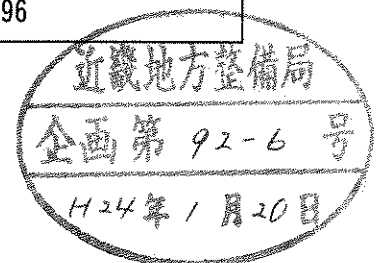 96
近畿地方整備局
企画第 92-6 号
H24年1月20日